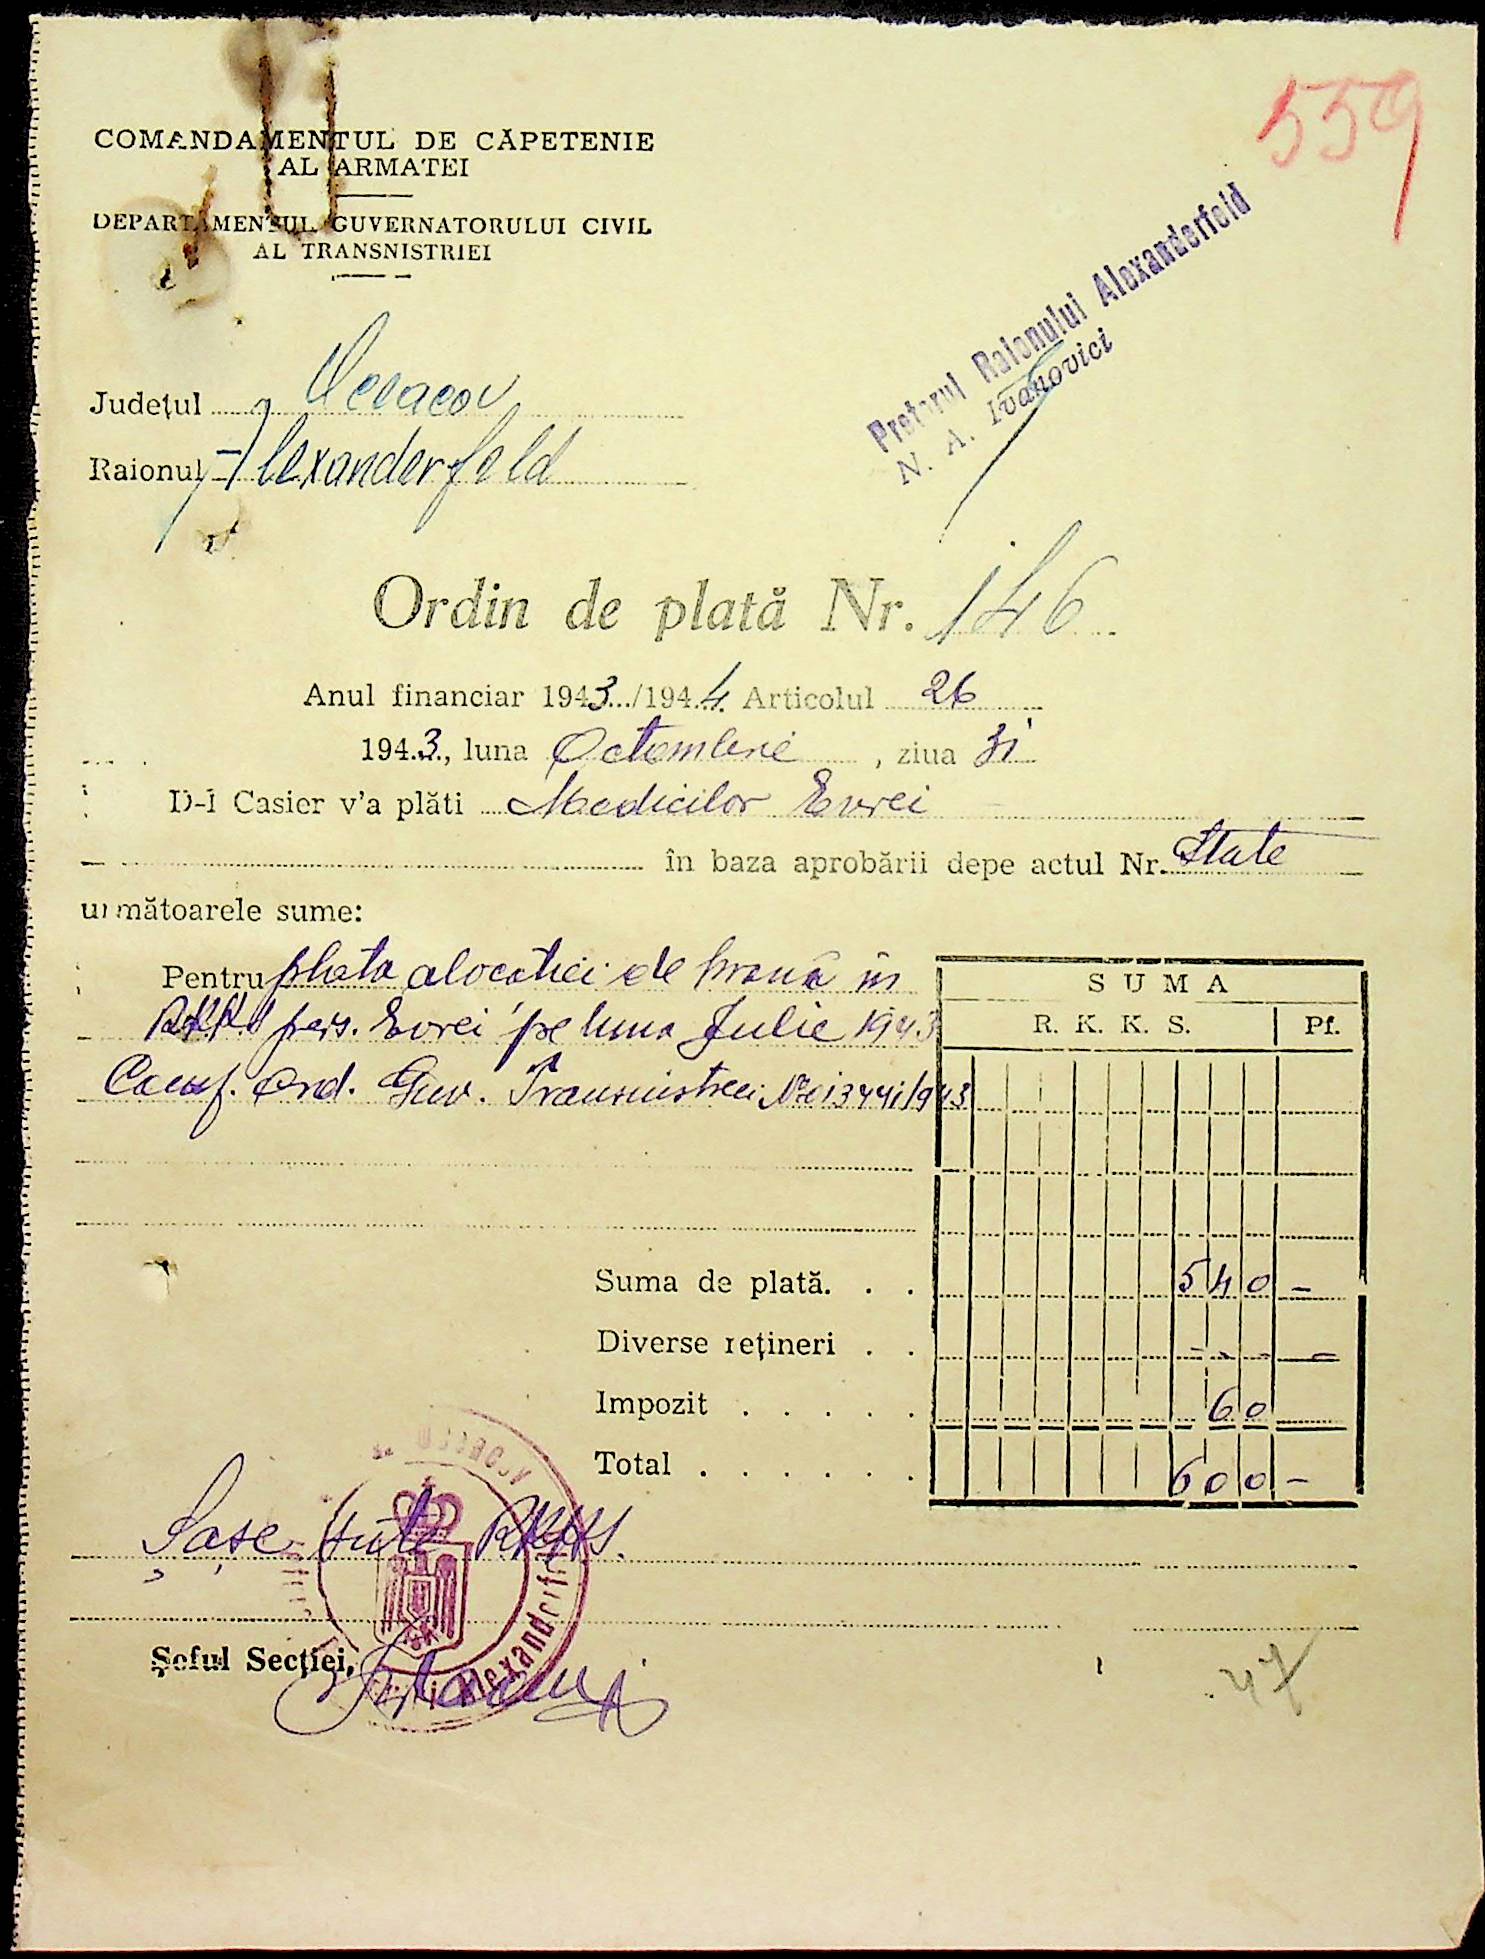 559
COMANDAMENTUL DE CĂPETENIE
AL ARMATEI
DEPARTAMENTUL GUVERNATORULUI CIVIL
AL TRANSNISTRIEI
Pretorul Raionului Alexanderfeld
N. A. Ivanovici
Județul Oceacov
Raionul Alexanderfeld
Ordin de plată Nr. 146
Anul financiar 1943../194.4. Articolul 26
194.3., luna Octombrie , ziua 31
D-l Casier v'a plăti Medicilor Evrei
în baza aprobării depe actul Nr. State
următoarele sume:
Pentru plata alocației de hrană în
RKKS pers. Evrei pe luna Julie 1943
Conf. Ord. Guv. Transnistriei No 13441/943
SUMA
R. K. K. S. Pf.
Suma de plată. . . 540 -
Diverse rețineri . . - - - -
Impozit . . . . . 60
Total . . . . . . 600 -
Șase sute RKKS.
Șeful Secției,
47